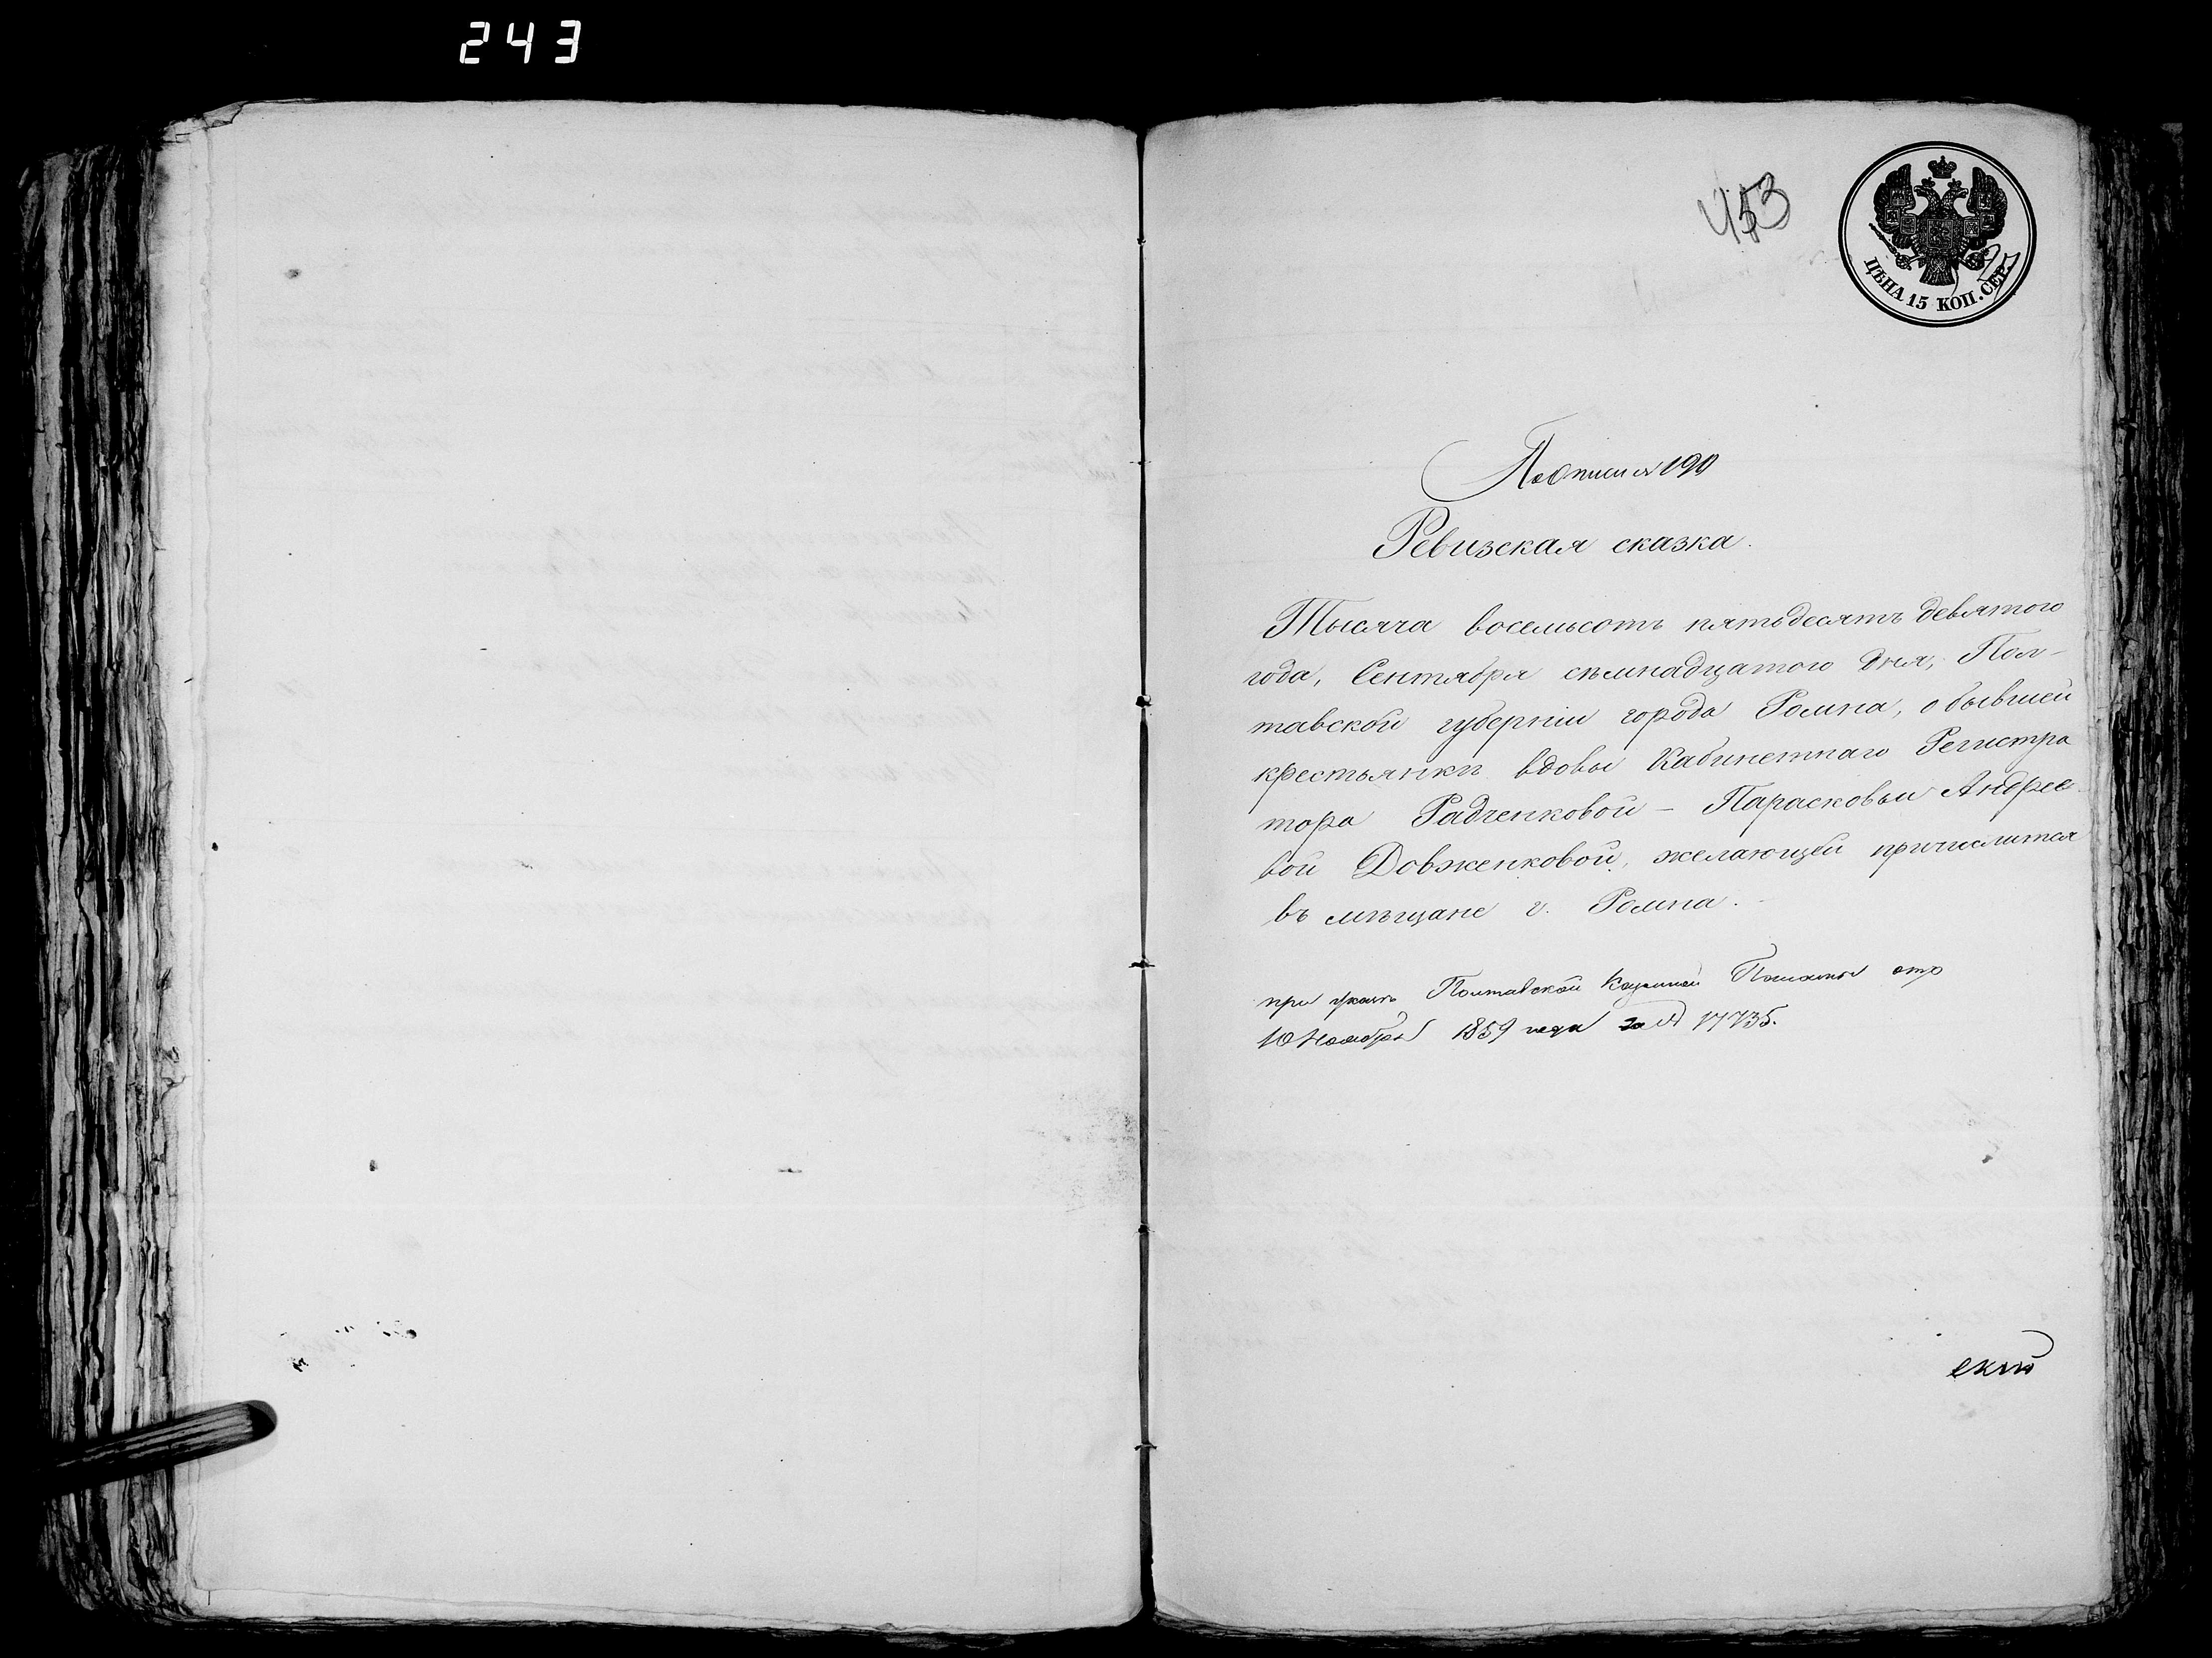 243
453
ЦѢНА 15 КОП. СЕР.
По описи № 190
Ревизская сказка.
Тысяча восемьсотъ пятьдесятъ девятого
года, Сентября сѣмнадцатого дня, Пол-
тавской губерніи города Ромна, о бывшей
крестьянки вдовы Кабинетнаго Регистра
тора Радченковой - Парасковьи Андрее-
вой Довженковой, желающей причислится
въ мѣщане г. Ромна.
при указѣ Полтавской Казенной Палаты отъ
10 Ноября 1859 года за № 17735.
скій